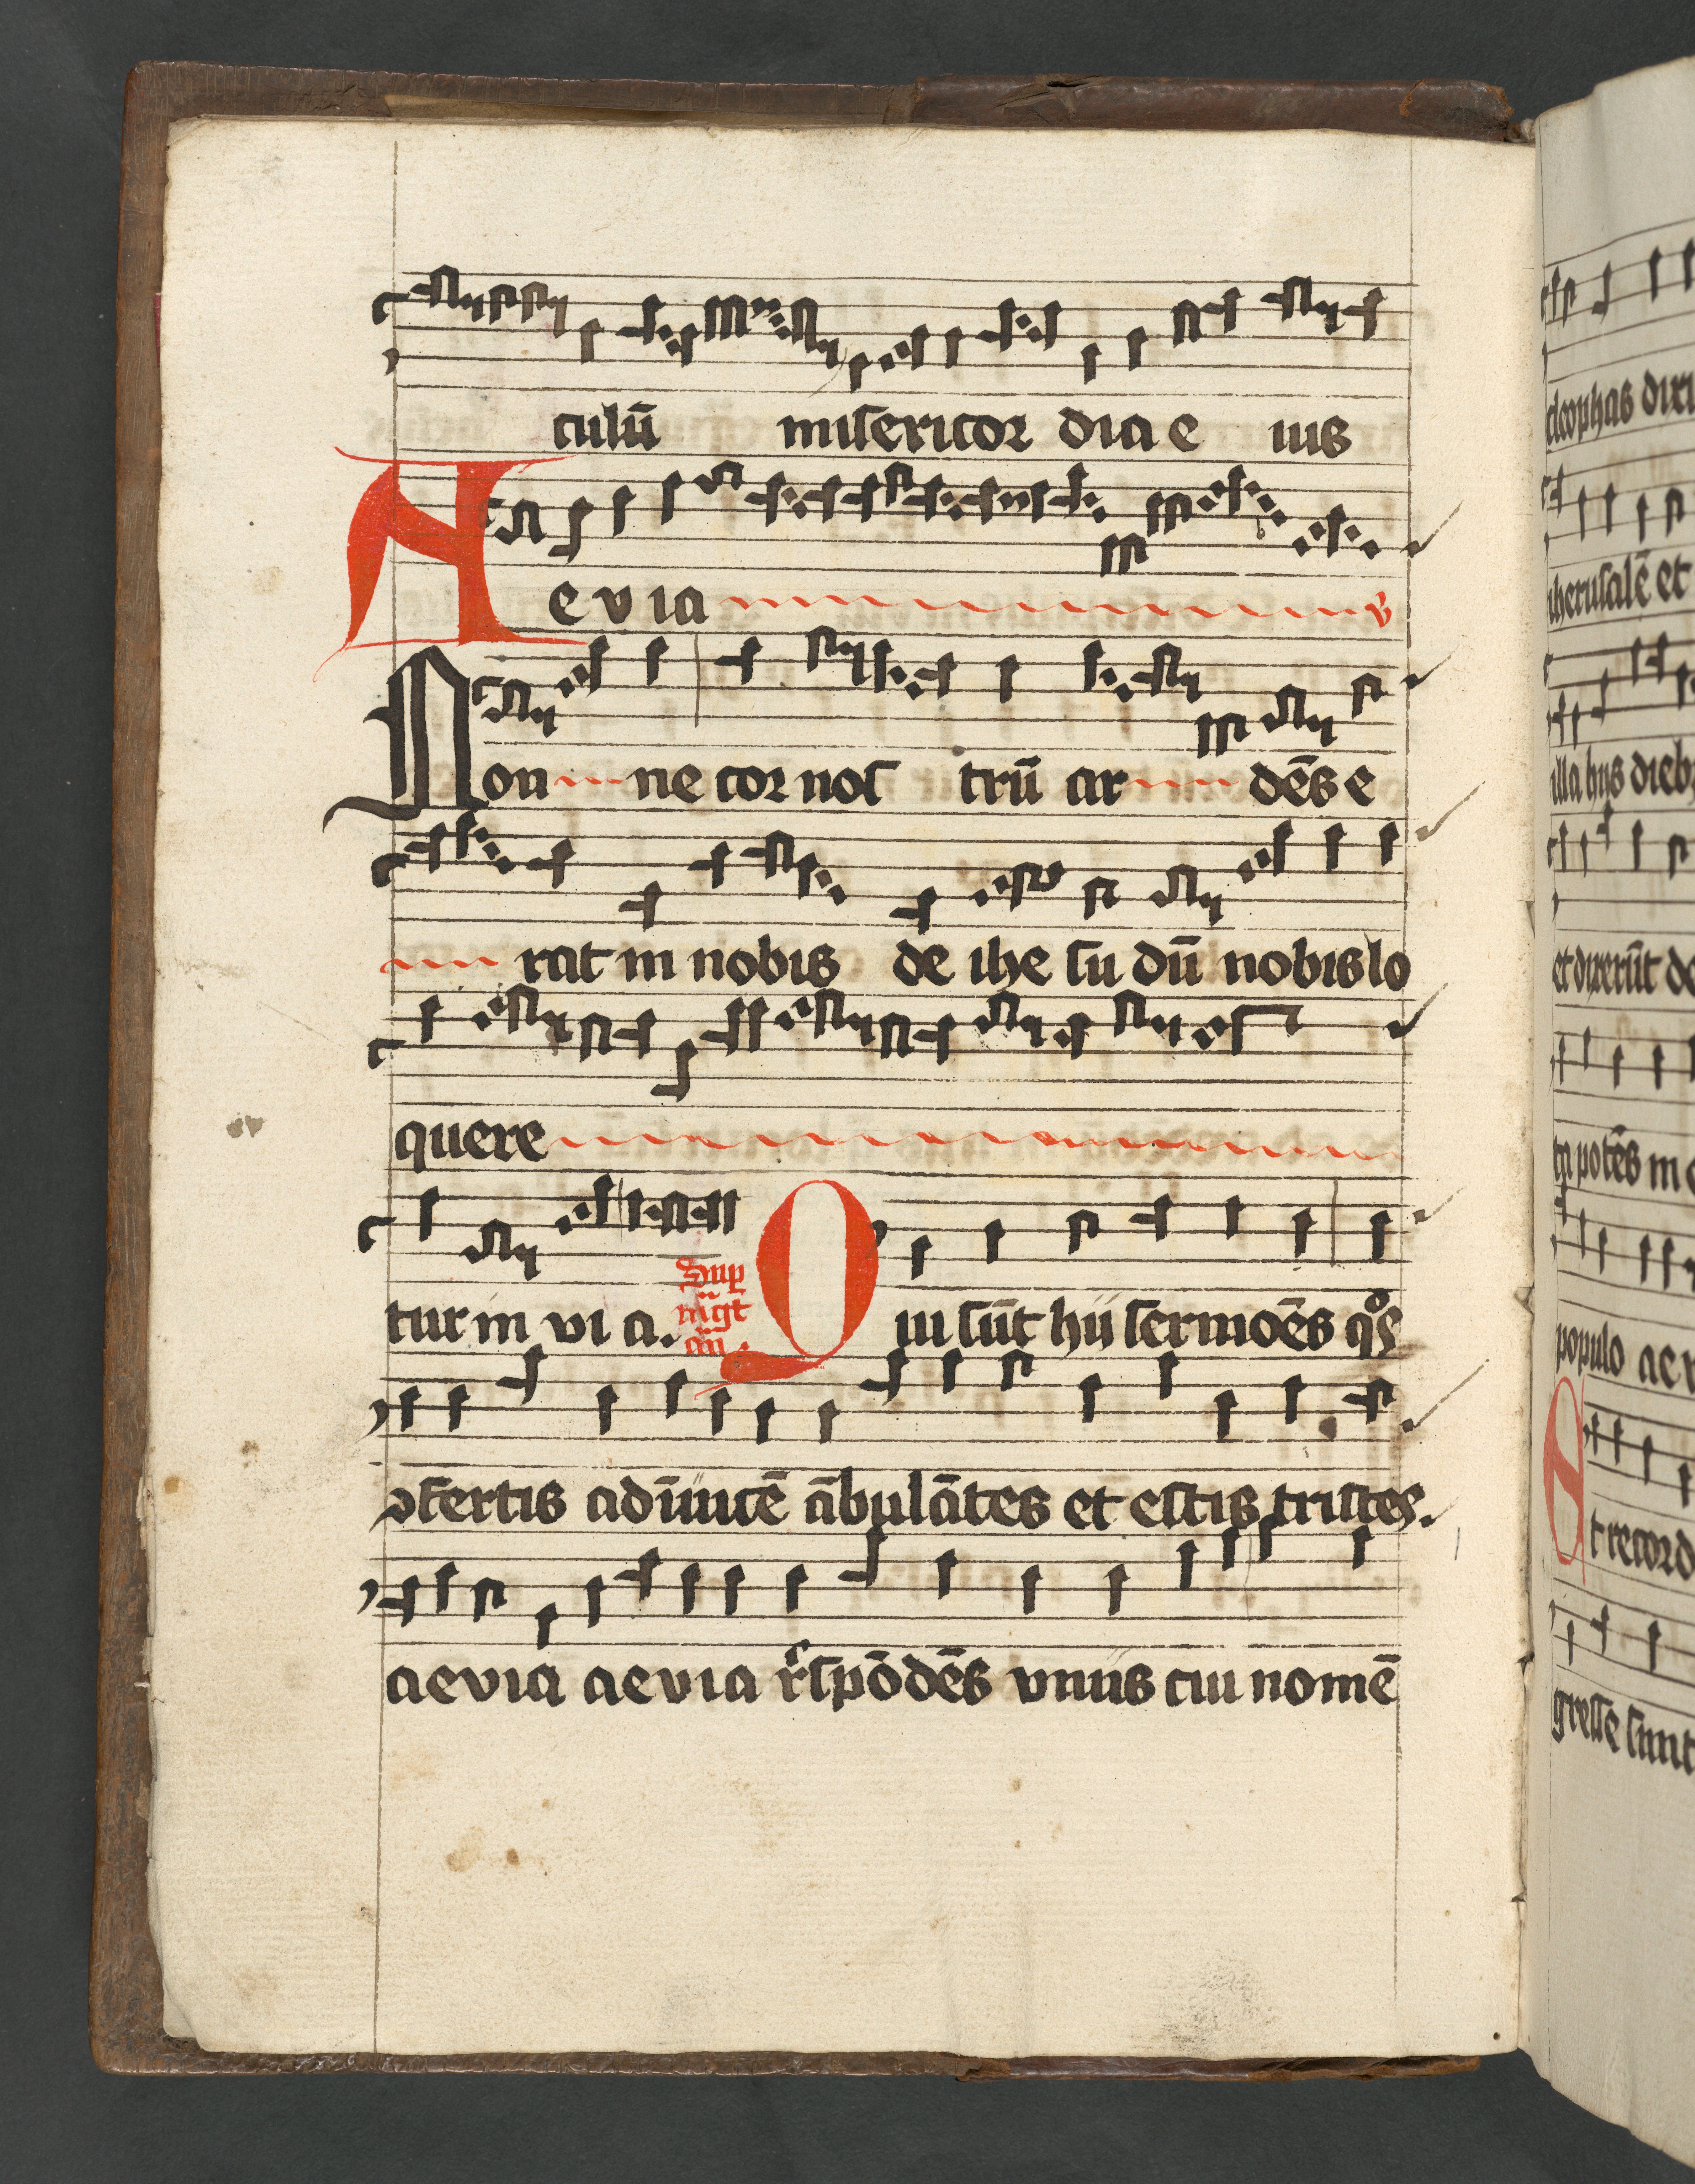 culū misericor dia e ius
Aevia ꝟ
Non ne cor nos trū ar dēs e
rat in nobis de ihe su dū nobis lo
quere
tur in vi a. Sup mgt an̄. Qui sūt hii sermoēs qͦs
ↄfertis adīuicē ābulātes et estis tristes.
aevia aevia rn̄spōdēs vnus cui nomē
cleophas dixi
iherusalē et
illa hijs dieb
et dixerūt de
populo ae
t record
gresse sunt